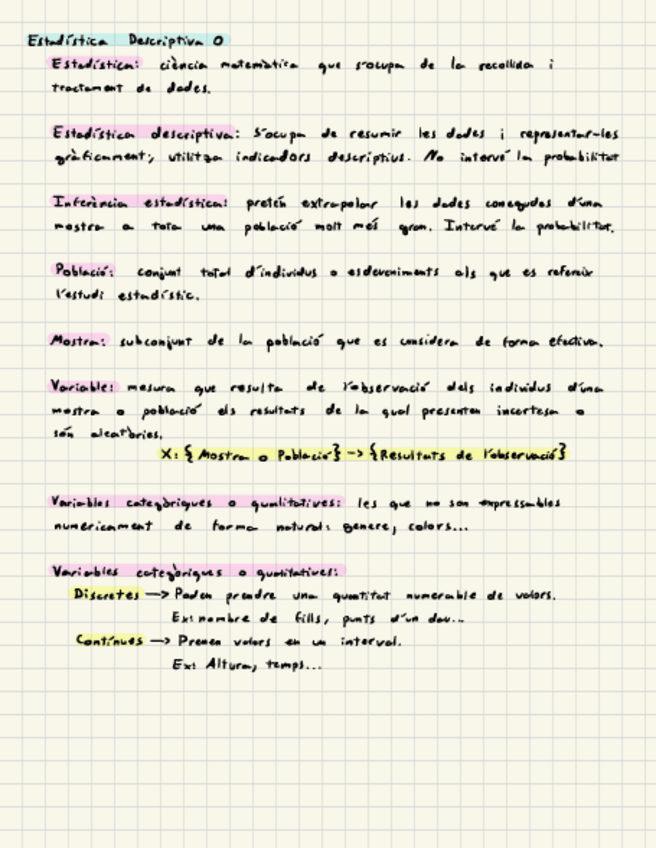 Estadística Descriptiva 0
Estadística: ciència matemàtica que s'ocupa de la recollida i
tractament de dades.
Estadística descriptiva: s'ocupa de resumir les dades i representar-les
gràficament; utilitza indicadors descriptius. No intervé la probabilitat
Inferència estadística: pretén extrapolar les dades conegudes d'una
mostra a tota una població molt més gran. Intervé la probabilitat.
Població: conjunt total d'individus o esdeveniments als que es refereix
l'estudi estadístic.
Mostra: subconjunt de la població que es considera de forma efectiva.
Variable: mesura que resulta de l'observació dels individus d'una
mostra o població els resultats de la qual presenten incertesa o
són aleatòries.
X: { Mostra o Població } -> { Resultats de l'observació }
Variables categòriques o qualitatives: les que no son expressables
numèricament de forma natural: genere, colors...
Variables categòriques o quantitatives:
Discretes -> Poden prendre una quantitat numerable de valors.
Ex: nombre de fills, punts d'un dau...
Contínues -> Prenen valors en un interval.
Ex: Altura, temps...